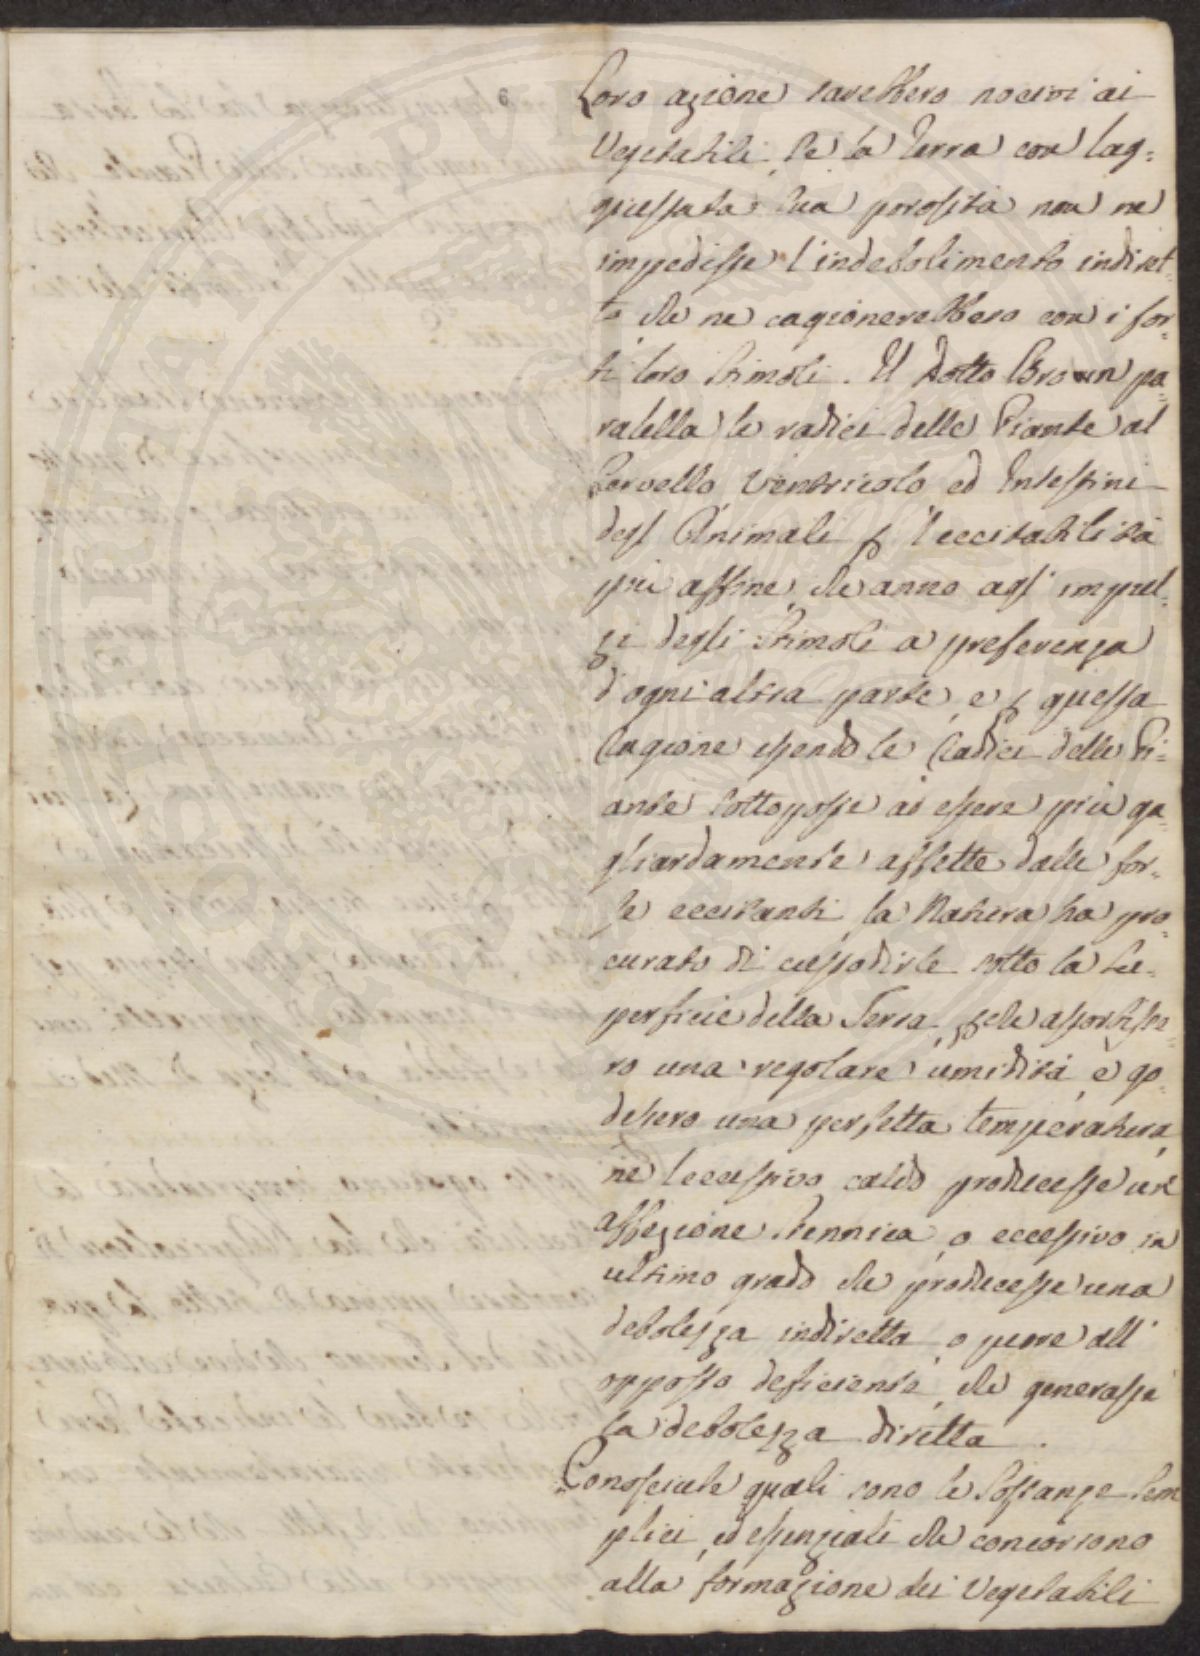 6
Loro azione sarebbero nocivi ai
Vegetabili, se la Terra con lag=
giustata sua porosità non ne
impedisse l'indebolimento indiret=
to che ne cagionerebbero con i for=
ti loro stimoli. Il Dotto Brown pa=
ralella le radici delle Piante al
Cervello Ventricolo ed Intestini
degl'Animali p l'eccitabilità
più affine, che anno agl'impul=
zi degli stimoli a preferenza
d'ogni altra parte, e p questa
Cagione essendo le Radici delle Pi=
ante sottoposte ad essere più ga=
gliardamente affette dalle for=
ze eccitanti, la Natura ha pro=
curato di custodirle sotto la Su=
perficie della Terra, che assorbisse=
ro una regolare umidità, e go=
dessero una perfetta temperatura,
ne l'eccessivo caldo producesse un
affezione stennica, o eccessivo in
ultimo grado che producesse una
debolezza indiretta, o pure all'
opposto deficiente, che generasse
la debolezza diretta.
Conosciute quali sono le Sostanze sem
plici, ed essenziali che concorrono
alla formazione dei Vegetabili